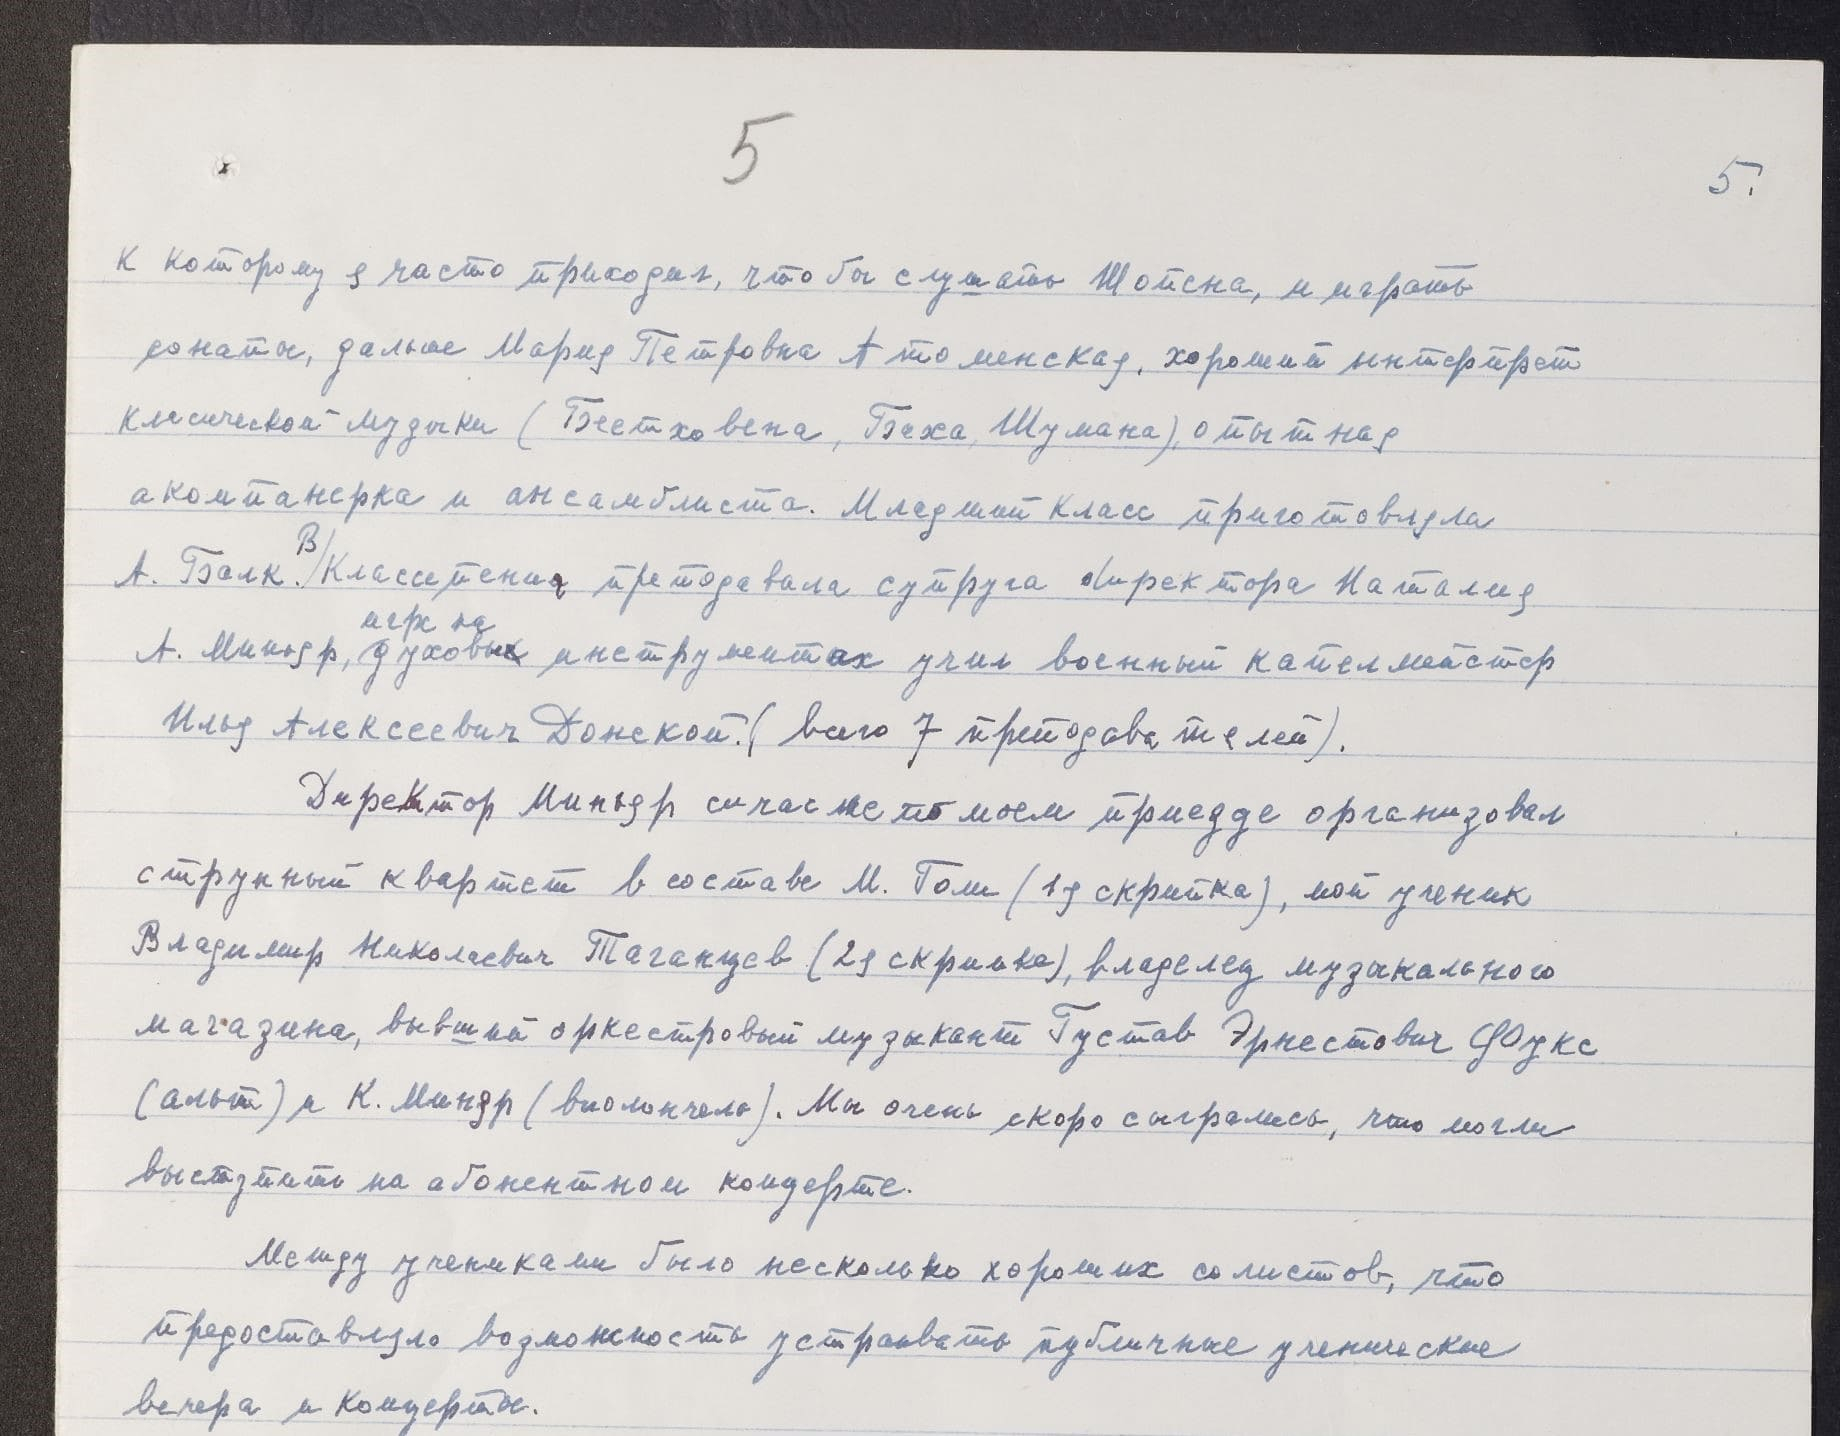 5
5.
к которому я часто приходил, что бы слушать Шопена, и играть
сонаты, дальше Мария Петровна Атоменская, хороший интерпрет
класической музыки (Бестховена, Баха, Шумана), опытная
акомпанерка и ансамблиста. Младший класс приготовляла
А. Балк. В/Классе пения преподавала супруга директора Наталия
игре на
А. Миньяр, духовых инструментах учил военный капелмейстер
Илья Алексеевич Донской. (всего 7 преподавателей).
Директор Миньяр сичас же по моем приезде организовал
струнный квартет в составе М. Гоми (1я скрипка), мой ученик
Владимир Николаевич Таганцев (2я скрипка), владелец музыкального
магазина, бывший оркестровый музыкант Густав Эрнестович Фукс
(альт) и К. Миняр (виолончель). Мы очень скоро сыгрались, что могли
выступить на абонентном концерте.
Между учениками было несколько хороших солистов, что
предоставляло возможность устраивать публичные ученические
вечера и концерты.